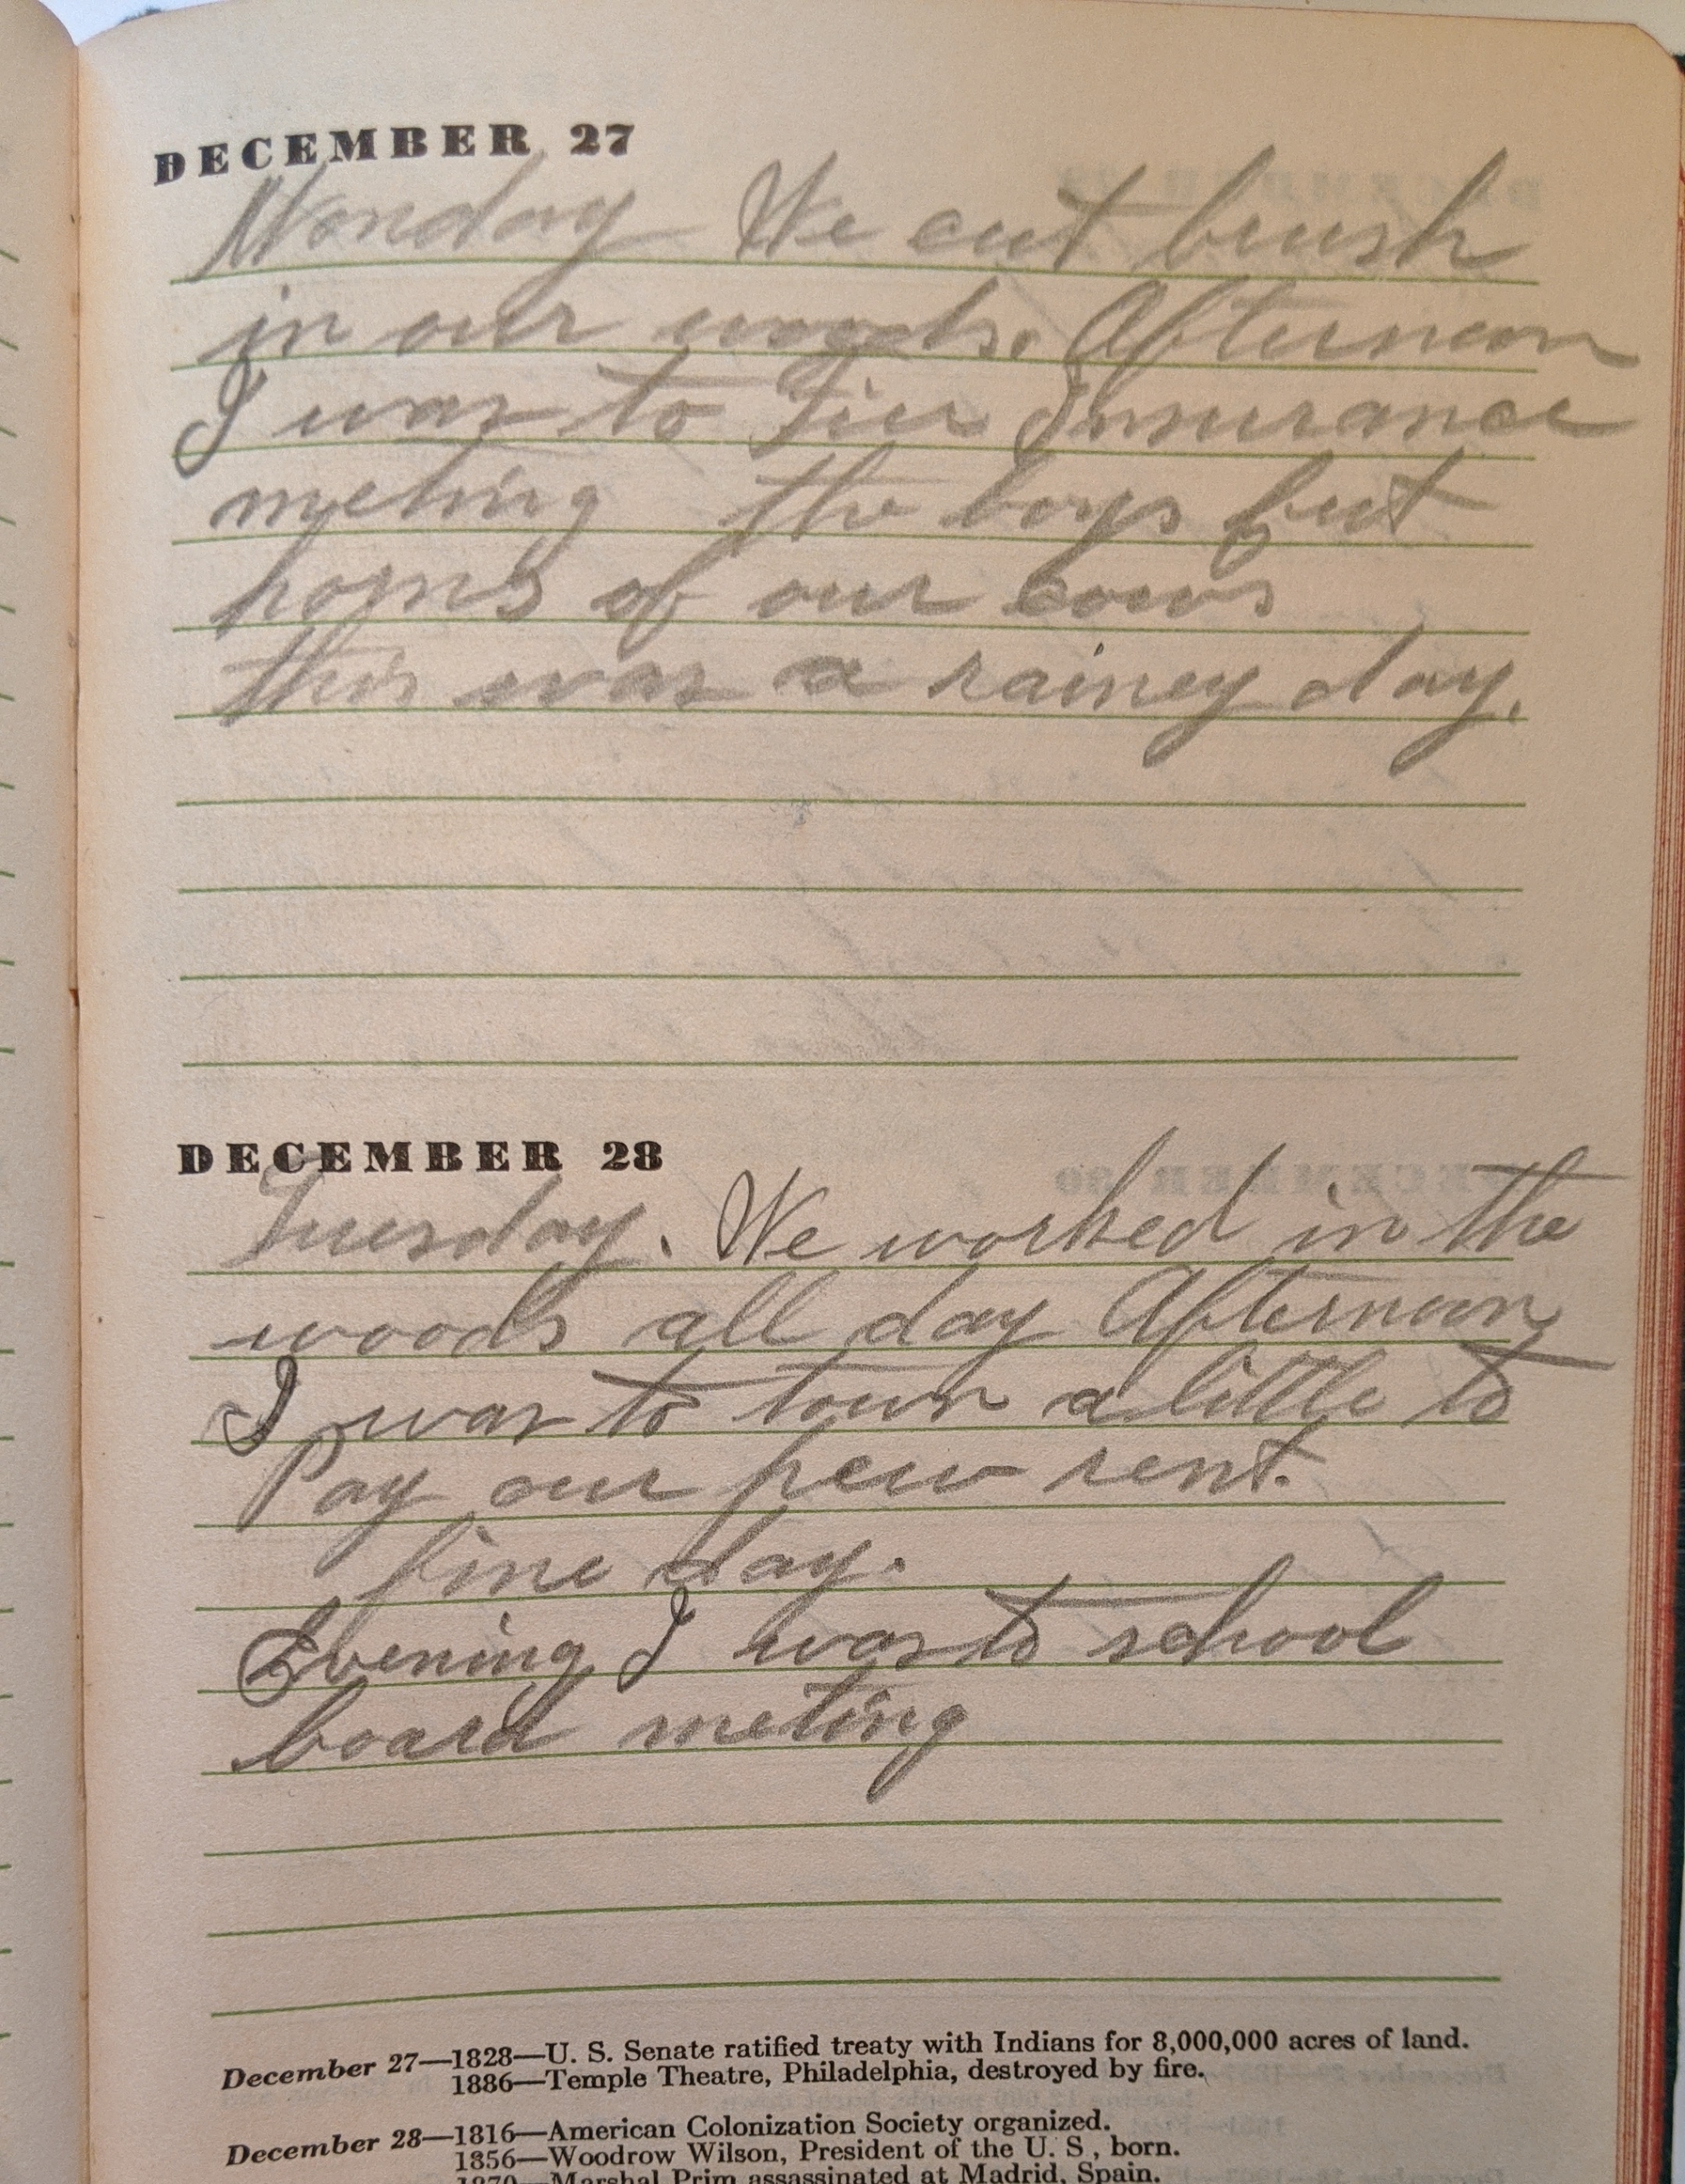 DECEMBER 27
Monday We cut brush
in our woods. Afternoon
I was to Fire Insurance
meting the boys but
horns of our cows
this was a rainey day.
DECEMBER 28
Tuesday. We worked in the
woods all day Afternoon
I was to town a little to
Pay our pew rent.
fine day.
Evening I was to school
board meting
December 27—1828—U. S. Senate ratified treaty with Indians for 8,000,000 acres of land.
1886—Temple Theatre, Philadelphia, destroyed by fire.
December 28—1816—American Colonization Society organized.
1856—Woodrow Wilson, President of the U. S , born.
1870—Marshal Prim assassinated at Madrid, Spain.